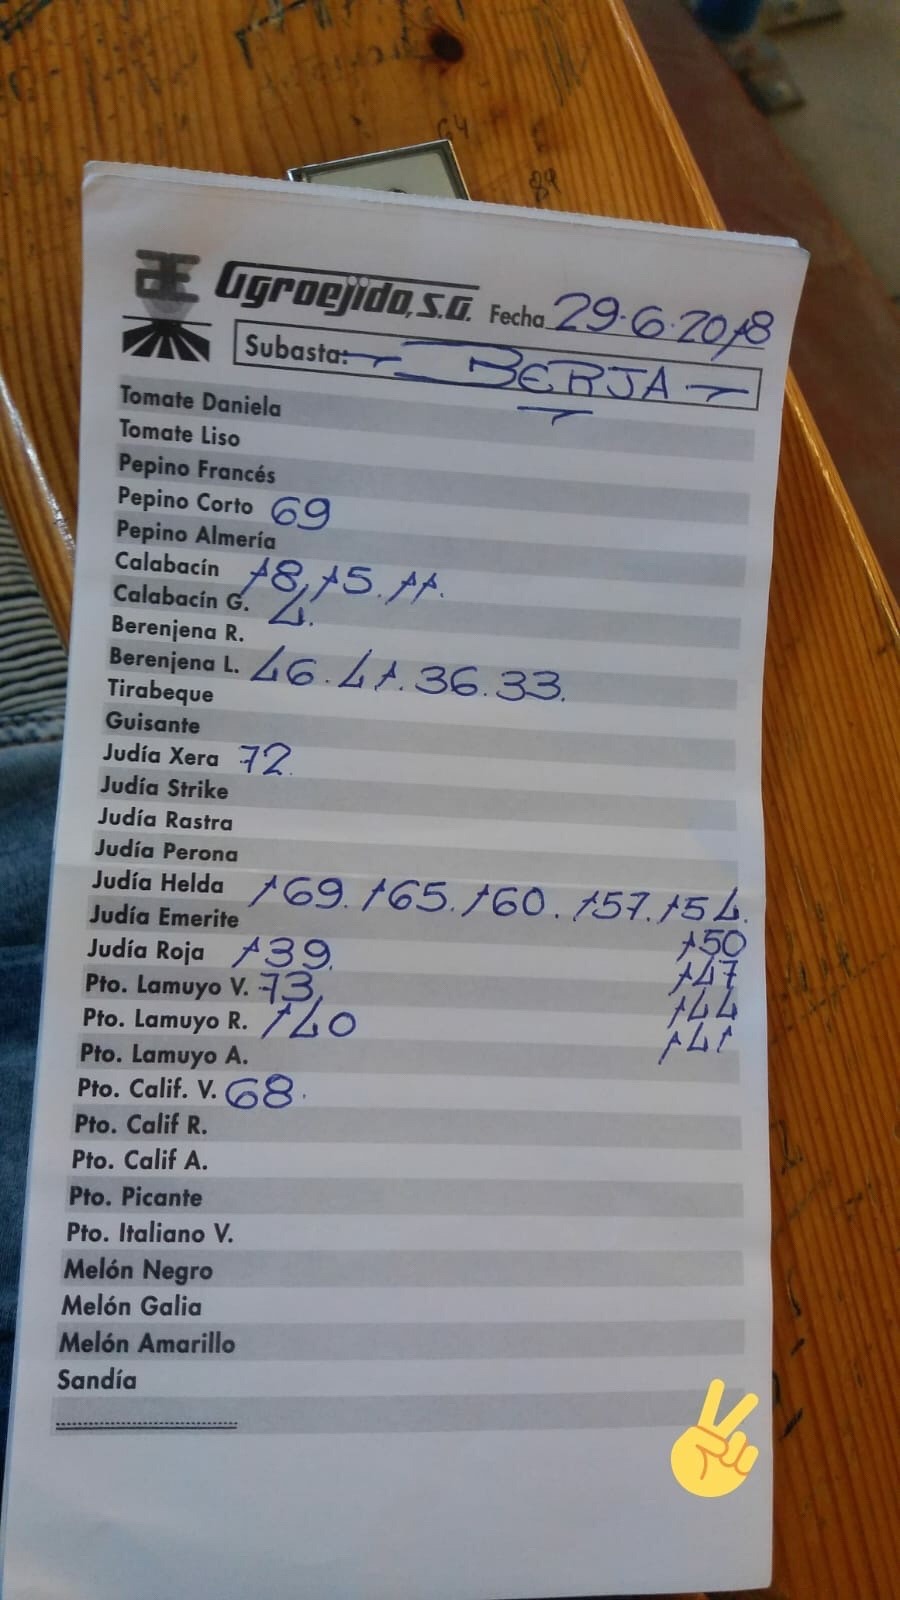 AE Agroejido, S.A. Fecha 29·6·2018
Subasta: BERJA
Tomate Daniela
Tomate Liso
Pepino Francés
Pepino Corto 69
Pepino Almería
Calabacín 18, 15. 11.
Calabacín G. 4.
Berenjena R.
Berenjena L. 46. 41. 36. 33.
Tirabeque
Guisante
Judía Xera 72.
Judía Strike
Judía Rastra
Judía Perona
Judía Helda 169. 165. 160. 157. 154.
Judía Emerite 150
Judía Roja 139. 147
Pto. Lamuyo V. 73, 144
Pto. Lamuyo R. 140 141
Pto. Lamuyo A.
Pto. Calif. V. 68.
Pto. Calif R.
Pto. Calif A.
Pto. Picante
Pto. Italiano V.
Melón Negro
Melón Galia
Melón Amarillo
Sandía
64
89